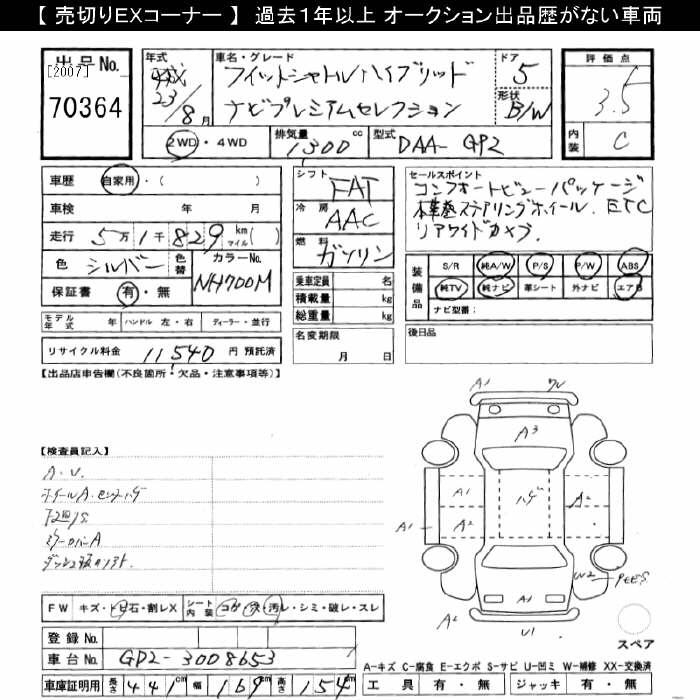 【 売切りEXコーナー 】 過去1年以上 オークション出品歴がない車両
出品No.
[2007]
70364
年式
平成
23/8月
車名・グレード
フィットシャトルハイブリッド
ナビプレミアムセレクション
ドア
5
形状
B/W
評価点
3.5
内装
C
2WD・4WD
排気量
1300cc
型式
DAA-GP2
車歴 自家用・( )
車検 年 月
走行 5万1千829km マイル( )
色 シルバー 色替 カラーNo. NH700M
保証書 有・無
シフト
FAT
冷房
AAC
燃料
ガソリン
乗車定員 名
積載量 kg
総重量 kg
セールスポイント
コンフォートビューパッケージ
本革巻ステアリングホイール. ETC
リアワイドカメラ.
装備品
S/R 純A/W P/S P/W ABS
純TV 純ナビ 革シート 外ナビ エアB
ナビ型番:
モデル年式 年 ハンドル 左・右 ディーラー・並行
名変期限
月 日
後日品
リサイクル料金 11540 円 預託済
【出品店申告欄(不良箇所・欠品・注意事項等)】
A1
A3
【検査員記入】
A.U.
ホイールA.センターハゲ
下廻りS
ミラーカバーA
A1
A2
ハゲ
A2
A1
A2
W2
A2
U1
FW キズ・トビ石・割レX シート内装 コゲ・穴・汚レ・シミ・破レ・スレ
スペア
登録No.
車台No. GP2-3008653
A-キズ C-腐食 E-エクボ S-サビ U-凹ミ W-補修 XX-交換済
車庫証明用 長さ 441cm 幅 169cm 高さ 154cm
工具 有・無 ジャッキ 有・無